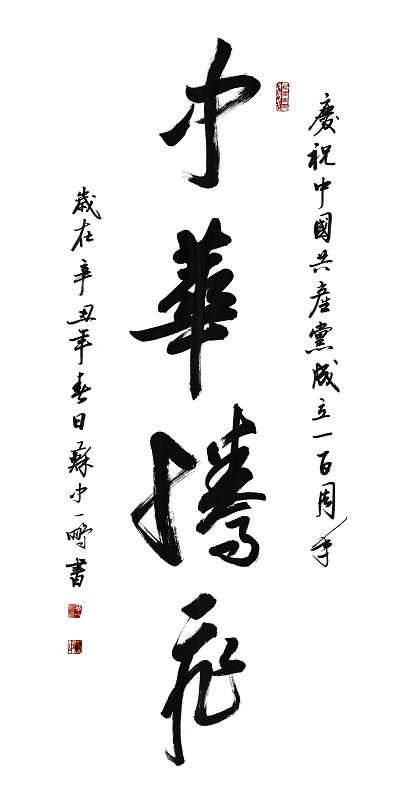 慶祝中國共產黨成立一百周年
中華騰飛
歲在辛丑年春日蘇中一野書